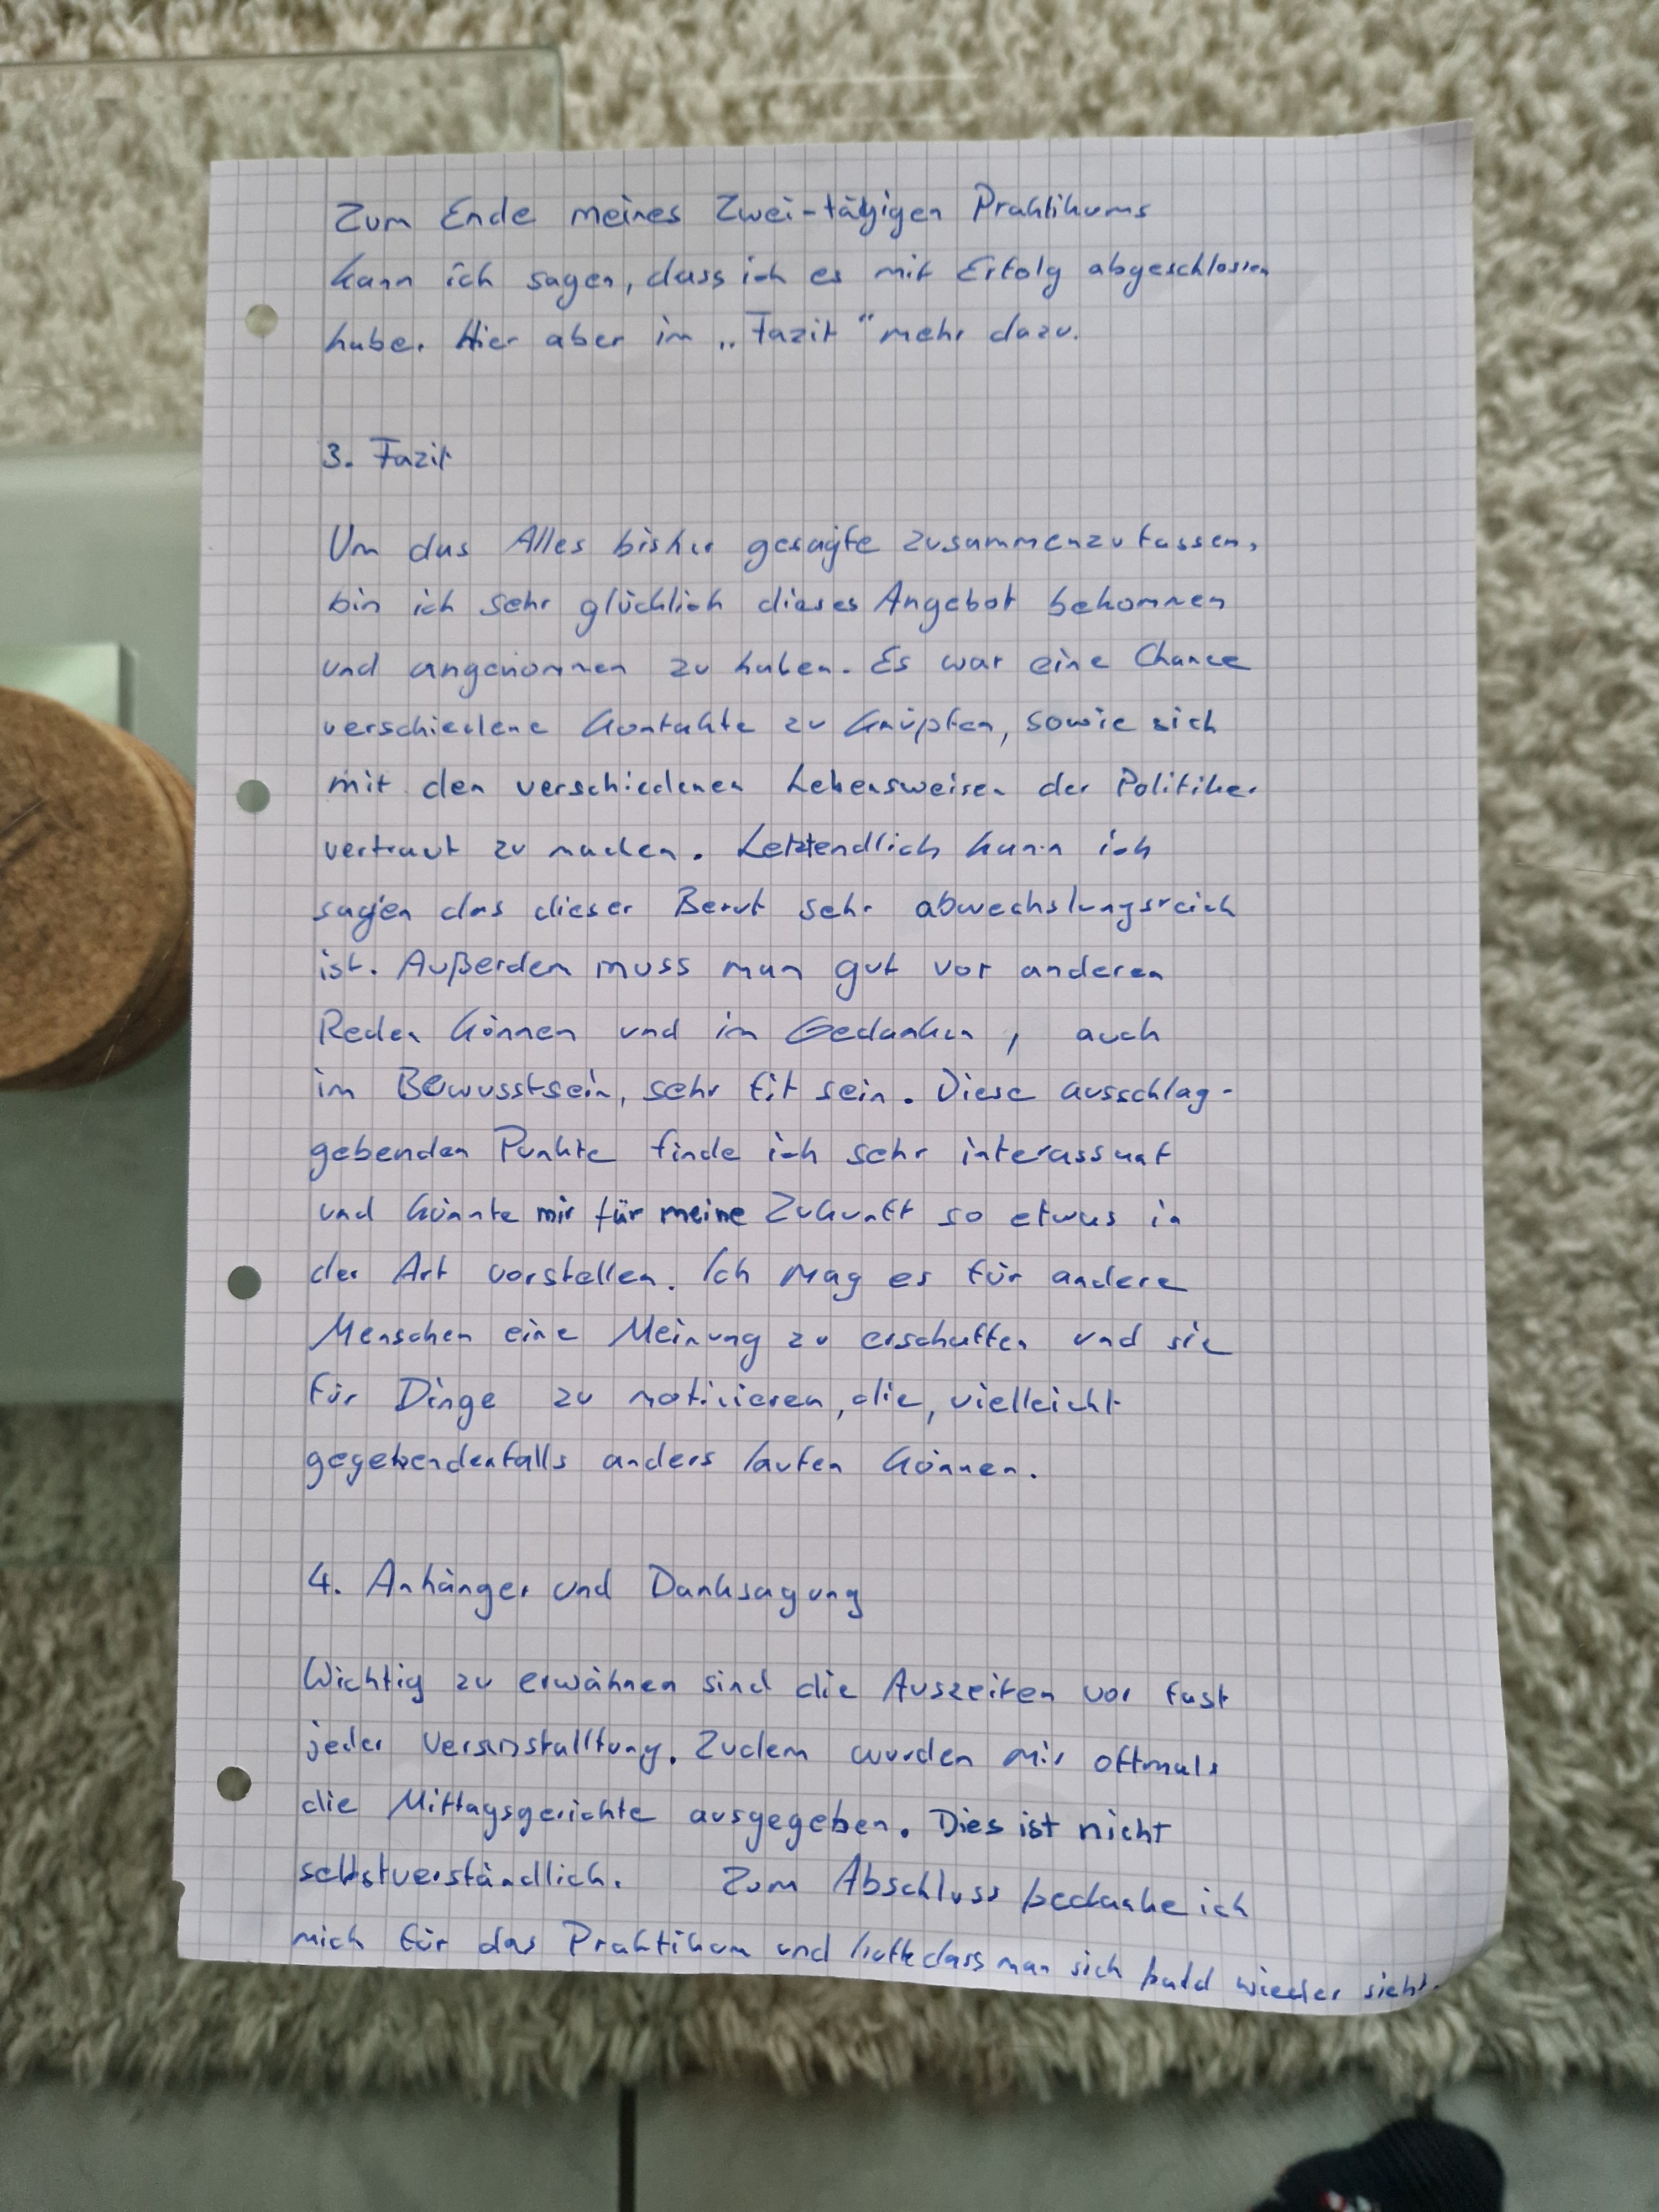 Zum Ende meines Zwei-tätigigen Praktikums
kann ich sagen, dass ich es mit Erfolg abgeschlossen
habe. Hier aber im „Fazit" mehr dazu.
3. Fazit
Um das Alles bisher gesagte zusammenzufassen,
bin ich sehr glücklich dieses Angebot bekommen
und angenommen zu haben. Es war eine Chance
verschiedene Kontakte zu knüpfen, sowie sich
mit den verschiedenen Lebensweisen der Politiker
vertraut zu machen. Letztendlich kann ich
sagen das dieser Beruf sehr abwechslungsreich
ist. Außerdem muss man gut vor anderen
Reden können und im Gedanken, auch
im Bewusstsein, sehr fit sein. Diese ausschlag-
gebenden Punkte finde ich sehr interassant
und könnte mir für meine Zukunft so etwas in
der Art vorstellen. Ich mag es für andere
Menschen eine Meinung zu erschaffen und sie
für Dinge zu motivieren, die, vielleicht
gegebendenfalls anders laufen können.
4. Anhänger und Danksagung
Wichtig zu erwähnen sind die Auszeiten vor fast
jeder Veranstalltung. Zudem wurden mir oftmals
die Mittagsgerichte ausgegeben. Dies ist nicht
selbstverständlich. Zum Abschluss bedanke ich
mich für das Praktikum und hoffe dass man sich bald wieder sieht.